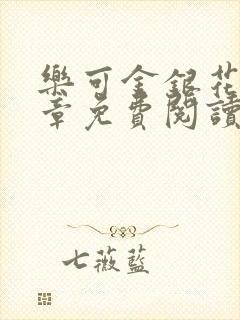 樂可金銀花
章免費閱讀
七薇藍